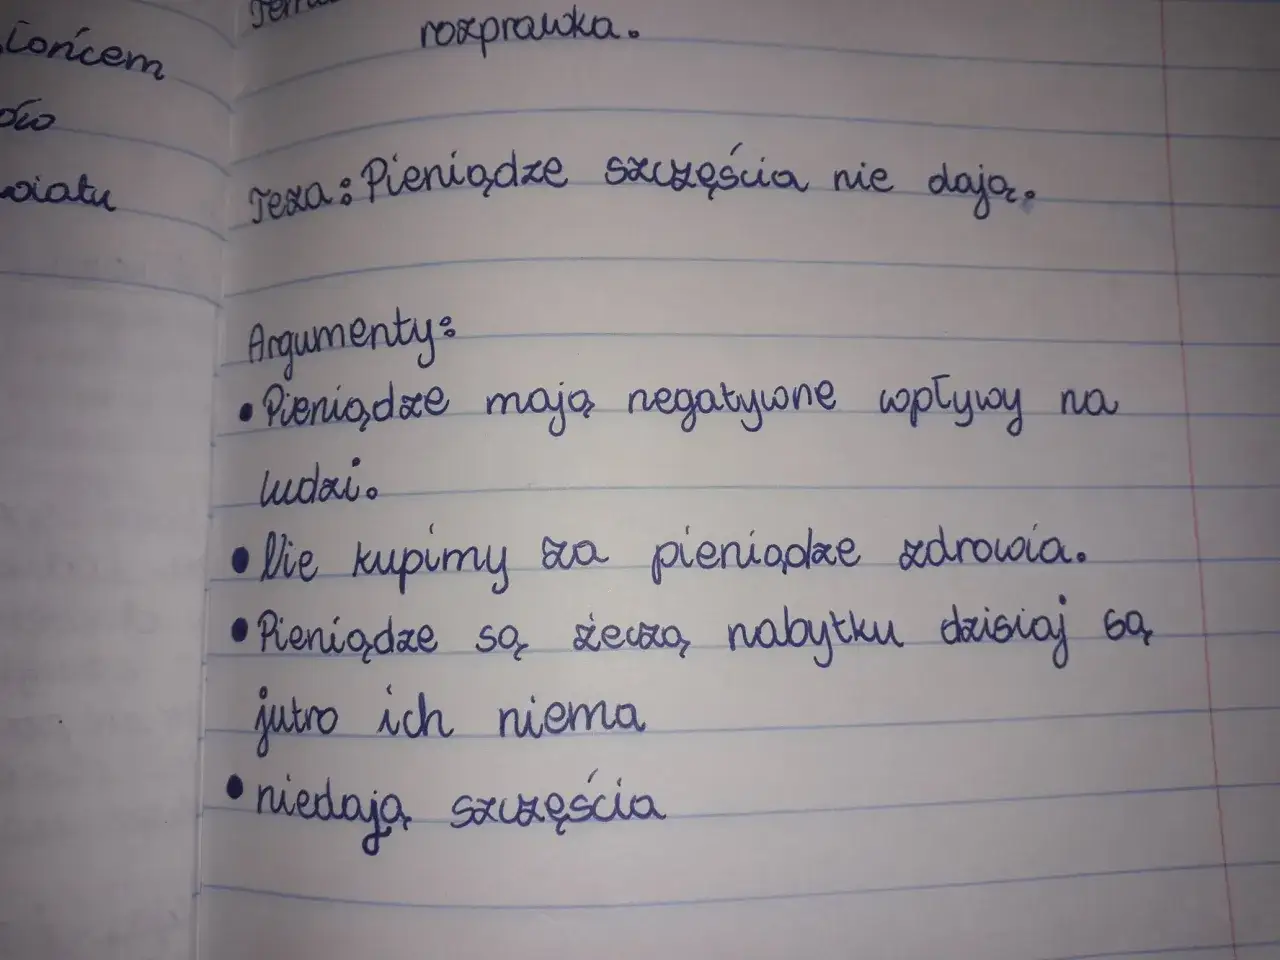 rozprawka.
Teza: Pieniądze szczęścia nie dają.
Argumenty:
• Pieniądze mają negatywne wpływy na
ludzi.
• Nie kupimy za pieniądze zdrowia.
• Pieniądze są żeczą nabytku dzisiaj są
jutro ich niema
• niedają szczęścia